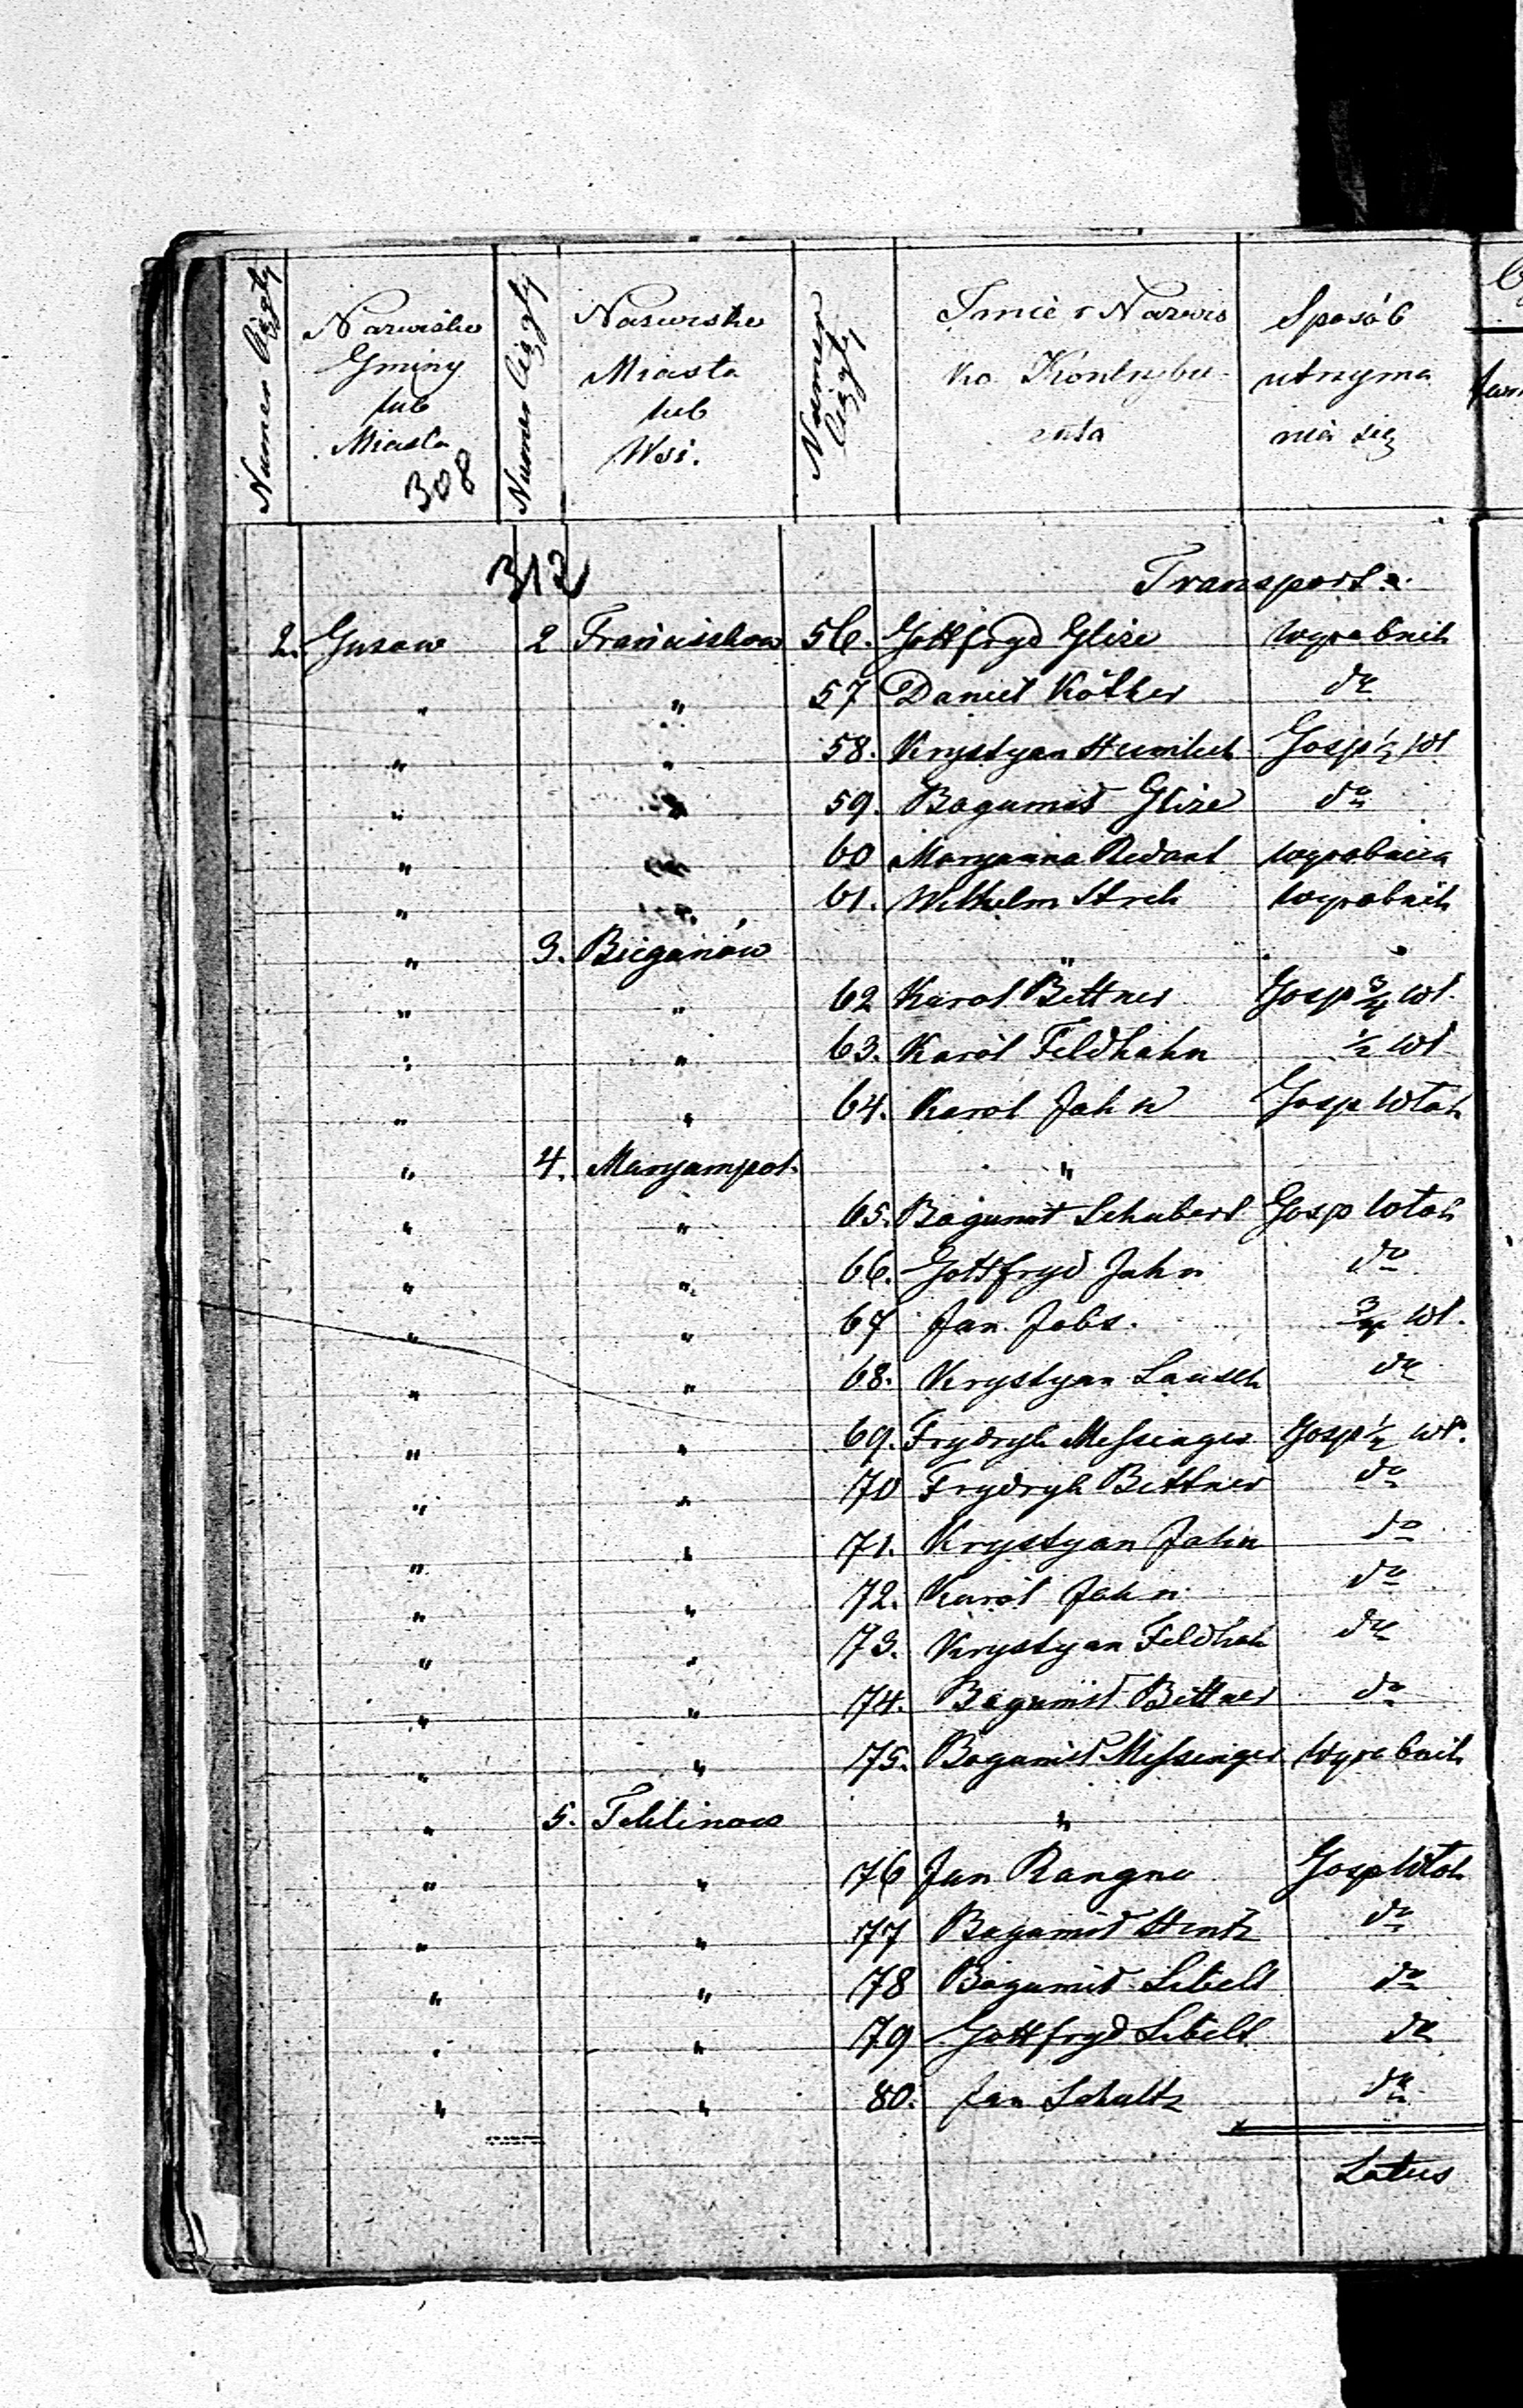 Numer bieżący
Nazwisko Gminy lub Miasta
308
Numer bieżący
Nazwisko Miasta lub Wsi.
Numer bieżący
Imie i Nazwisko Kontrybuenta
Sposób utrzymania się
312
Transport.
2. Guzow 2 Franciszkow 56. Gottfryd Glize wyrobnik
" " 57 Daniel Köther do
" " 58. Krystyan Gosp ½ wł
" " 59. Bogumił Glize do
" " 60 Maryanna Redant wyrobnica
" " 61. Wilhelm wyrobnik
" 3. Bieganów "
" " 62 Karol Bittner Gosp ¾ wł.
" " 63. Karol Feldhahn ½ wł
" " 64. Karol Jahn Gosp włok
" 4. Maryampol. "
" " 65. Bogumił Schubert Gosp włok
" " 66. Gottfryd Jahn do
" " 67 Jan Jobs. ¾ wł.
" " 68. Krystyan Lausch do
" " 69. Frydryk Messinger Gosp ½ wł.
" " 70 Frydryk Bittner do
" " 71. Krystyan Jahn do
" " 72. Karol Jahn do
" " 73. Krystyan Feldhah do
" " 74. Bogumił Bittner do
" " 75. Bogumił Messinger wyrobnik
" 5. Teklinow "
" " 76 Jan Rangno Gosp Włok
" " 77 Bogumił Hentz do
" " 78 Bogumił do
" " 79 Gottfryd do
" " 80. Jan Schultz do
Latus